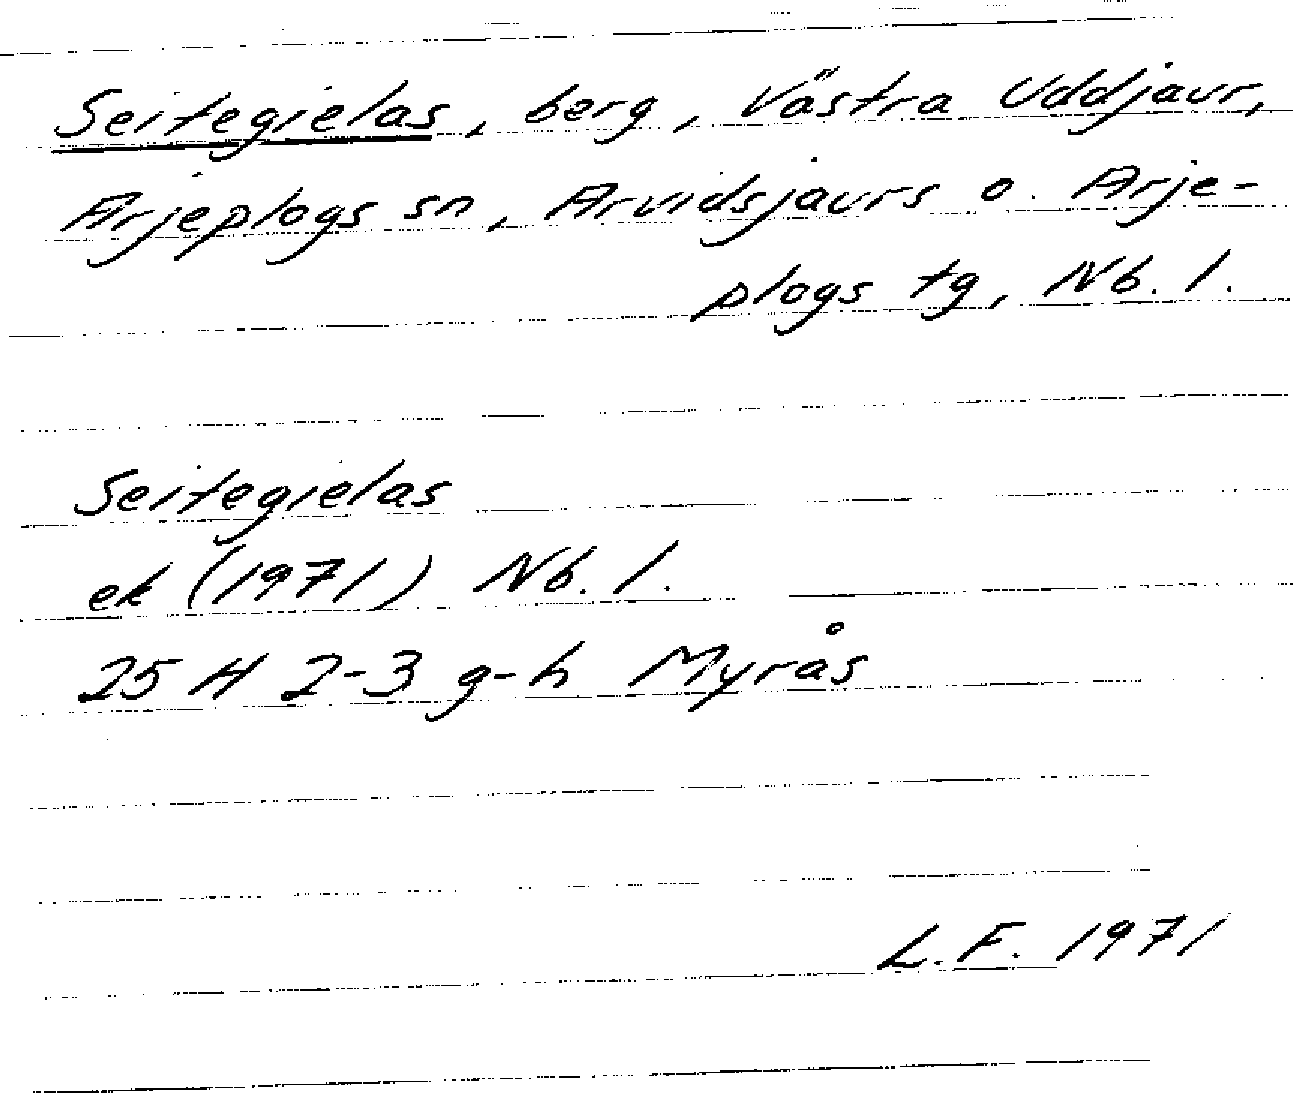 Seitegielas, berg, Västra Uddjaur,
Arjeplogs sn, Arvidsjaurs o. Arje-
plogs tg, Nb. l.
Seitegielas
ek (1971) Nb. l.
25 H 2-3 g-h Myrås
L.F. 1971